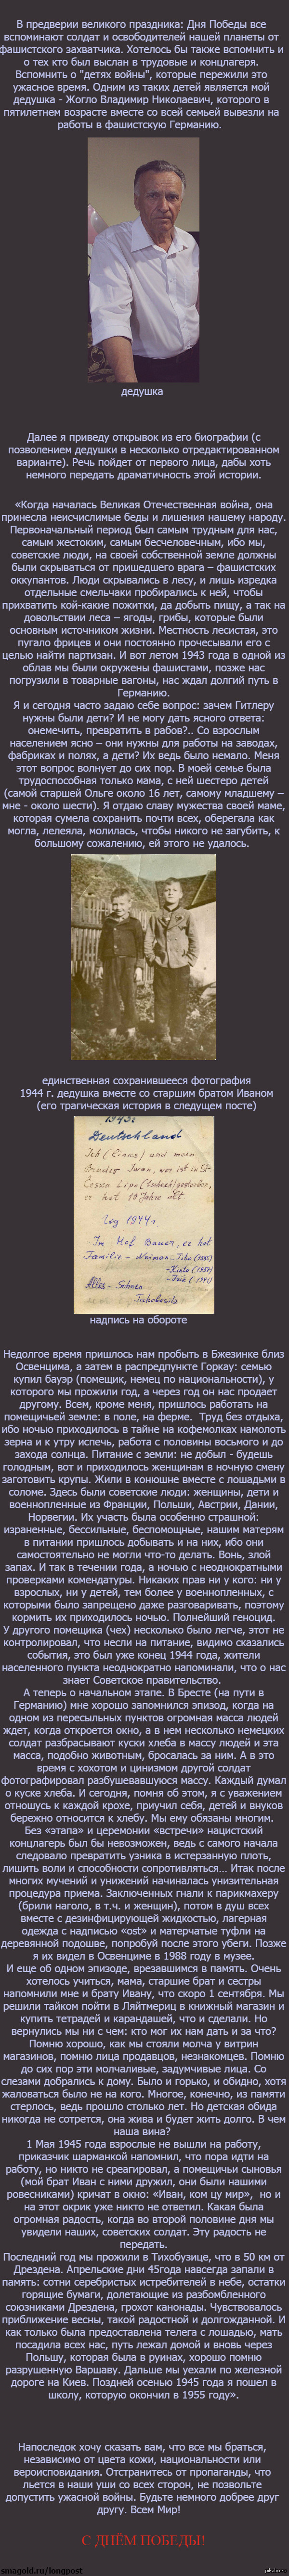 В предверии великого праздника: Дня Победы все
вспоминают солдат и освободителей нашей планеты от
фашистского захватчика. Хотелось бы также вспомнить и
о тех кто был выслан в трудовые и концлагеря.
Вспомнить о "детях войны", которые пережили это
ужасное время. Одним из таких детей является мой
дедушка - Жогло Владимир Николаевич, которого в
пятилетнем возрасте вместе со всей семьей вывезли на
работы в фашистскую Германию.
дедушка
Далее я приведу открывок из его биографии (с
позволением дедушки в несколько отредактированном
варианте). Речь пойдет от первого лица, дабы хоть
немного передать драматичность этой истории.
«Когда началась Великая Отечественная война, она
принесла неисчислимые беды и лишения нашему народу.
Первоначальный период был самым трудным для нас,
самым жестоким, самым бесчеловечным, ибо мы,
советские люди, на своей собственной земле должны
были скрываться от пришедшего врага – фашистских
оккупантов. Люди скрывались в лесу, и лишь изредка
отдельные смельчаки пробирались к ней, чтобы
прихватить кой-какие пожитки, да добыть пищу, а так на
довольствии леса – ягоды, грибы, которые были
основным источником жизни. Местность лесистая, это
пугало фрицев и они постоянно прочесывали его с
целью найти партизан. И вот летом 1943 года в одной из
облав мы были окружены фашистами, позже нас
погрузили в товарные вагоны, нас ждал долгий путь в
Германию.
Я и сегодня часто задаю себе вопрос: зачем Гитлеру
нужны были дети? И не могу дать ясного ответа:
онемечить, превратить в рабов?.. Со взрослым
населением ясно – они нужны для работы на заводах,
фабриках и полях, а дети? Их ведь было немало. Меня
этот вопрос волнует до сих пор. В моей семье была
трудоспособная только мама, с ней шестеро детей
(самой старшей Ольге около 16 лет, самому младшему –
мне - около шести). Я отдаю славу мужества своей маме,
которая сумела сохранить почти всех, оберегала как
могла, лелеяла, молилась, чтобы никого не загубить, к
большому сожалению, ей этого не удалось.
единственная сохранившееся фотография
1944 г. дедушка вместе со старшим братом Иваном
(его трагическая история в следущем посте)
Deutschland
Ich
und mein
Bruder Iwan, wer ist in St
Lipe
gestorben,
er hat 10 Jahre alt.
1944 г.
Im Hof Bauer, er hat
Familie - Neiman - Tito (1935)
надпись на обороте
Недолгое время пришлось нам пробыть в Бжезинке близ
Освенцима, а затем в распредпункте Горкау: семью
купил бауэр (помещик, немец по национальности), у
которого мы прожили год, а через год он нас продает
другому. Всем, кроме меня, пришлось работать на
помещичьей земле: в поле, на ферме. Труд без отдыха,
ибо ночью приходилось в тайне на кофемолках намолоть
зерна и к утру испечь, работа с половины восьмого и до
захода солнца. Питание с земли: не добыл - будешь
голодным, вот и приходилось женщинам в ночную смену
заготовить крупы. Жили в конюшне вместе с лошадьми в
соломе. Здесь были советские люди: женщины, дети и
военнопленные из Франции, Польши, Австрии, Дании,
Норвегии. Их участь была особенно страшной:
израненные, бессильные, беспомощные, нашим матерям
в питании пришлось добывать и на них, ибо они
самостоятельно не могли что-то делать. Вонь, злой
запах. И так в течении года, а ночью с неоднократными
проверками комендатуры. Никаких прав ни у кого: ни у
взрослых, ни у детей, тем более у военнопленных, с
которыми было запрещено даже разговаривать, поэтому
кормить их приходилось ночью. Полнейший геноцид.
У другого помещика (чех) несколько было легче, этот не
контролировал, что несли на питание, видимо сказались
события, это был уже конец 1944 года, жители
населенного пункта неоднократно напоминали, что о нас
знает Советское правительство.
А теперь о начальном этапе. В Бресте (на пути в
Германию) мне хорошо запомнился эпизод, когда на
одном из пересыльных пунктов огромная масса людей
ждет, когда откроется окно, а в нем несколько немецких
солдат разбрасывают куски хлеба в массу людей и эта
масса, подобно животным, бросалась за ним. А в это
время с хохотом и цинизмом другой солдат
фотографировал разбушевавшуюся массу. Каждый думал
о куске хлеба. И сегодня, помня об этом, я с уважением
отношусь к каждой крохе, приучил себя, детей и внуков
бережно относится к хлебу. Мы ему обязаны многим.
Без «этапа» и церемонии «встречи» нацистский
концлагерь был бы невозможен, ведь с самого начала
следовало превратить узника в истерзанную плоть,
лишить воли и способности сопротивляться... Итак после
многих мучений и унижений начиналась унизительная
процедура приема. Заключенных гнали к парикмахеру
(брили наголо, в т.ч. и женщин), потом в душ всех
вместе с дезинфицирующей жидкостью, лагерная
одежда с надписью «ost» и матерчатые туфли на
деревянной подошве, попробуй после этого убеги. Позже
я их видел в Освенциме в 1988 году в музее.
И еще об одном эпизоде, врезавшимся в память. Очень
хотелось учиться, мама, старшие брат и сестры
напомнили мне и брату Ивану, что скоро 1 сентября. Мы
решили тайком пойти в Ляйтмериц в книжный магазин и
купить тетрадей и карандашей, что и сделали. Но
вернулись мы ни с чем: кто мог их нам дать и за что?
Помню хорошо, как мы стояли молча у витрин
магазинов, помню лица продавцов, незнакомцев. Помню
до сих пор эти молчаливые, задумчивые лица. Со
слезами добрались к дому. Было и горько, и обидно, хотя
жаловаться было не на кого. Многое, конечно, из памяти
стерлось, ведь прошло столько лет. Но детская обида
никогда не сотрется, она жива и будет жить долго. В чем
наша вина?
1 Мая 1945 года взрослые не вышли на работу,
приказчик шарманкой напомнил, что пора идти на
работу, но никто не среагировал, а помещичьи сыновья
(мой брат Иван с ними дружил, они были нашими
ровесниками) кричат в окно: «Иван, ком цу мир», но и
на этот окрик уже никто не ответил. Какая была
огромная радость, когда во второй половине дня мы
увидели наших, советских солдат. Эту радость не
передать.
Последний год мы прожили в Тихобузице, что в 50 км от
Дрездена. Апрельские дни 45года навсегда запали в
память: сотни серебристых истребителей в небе, остатки
горящие бумаги, долетающие из разбомбленного
союзниками Дрездена, грохот канонады. Чувствовалось
приближение весны, такой радостной и долгожданной. И
как только была предоставлена телега с лошадью, мать
посадила всех нас, путь лежал домой и вновь через
Польшу, которая была в руинах, хорошо помню
разрушенную Варшаву. Дальше мы уехали по железной
дороге на Киев. Поздней осенью 1945 года я пошел в
школу, которую окончил в 1955 году».
Напоследок хочу сказать вам, что все мы браться,
независимо от цвета кожи, национальности или
вероисповидания. Отстранитесь от пропаганды, что
льется в наши уши со всех сторон, не позвольте
допустить ужасной войны. Будьте немного добрее друг
другу. Всем Мир!
С ДНЁМ ПОБЕДЫ!
smagold.ru/longpost
pikabu.ru